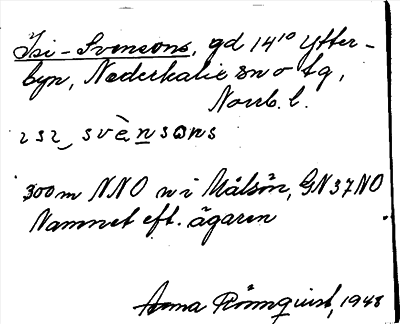 Isi-Svensons, gd 14¹⁰ Ytter-
byn, Nederkalix sn o tg,
Norrb. l.
ısı svènsɷns
300 m NNO n i Målsön, GN37NO
Namnet eft. ägaren
Anna Rönnquist, 1948